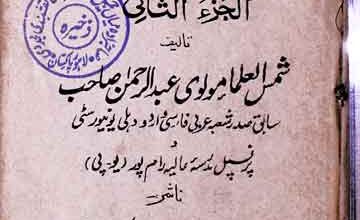 الجزء الثانی
تالیف
شمس العلما مولوی عبد الرحمٰن صاحب
سابق صدر شعبہ عربی فارسی اردو دہلی یونیورسٹی
و
پرنسپل مدرسہ عالیہ رام پور (یو-پی)
ناشر
ذخیرہ